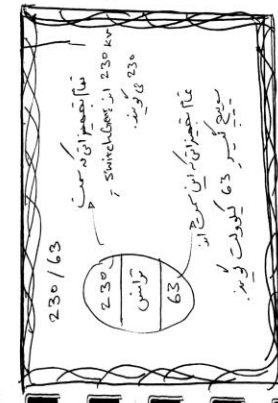 230/63
230
ترانس
63
تمام تجهیزاتی که سمت
230 kv اند SwitchGear
230 می گویند.
تمام تجهیزاتی که این سمت اند
سوییچ گیر 63 کیلوولت گویند.